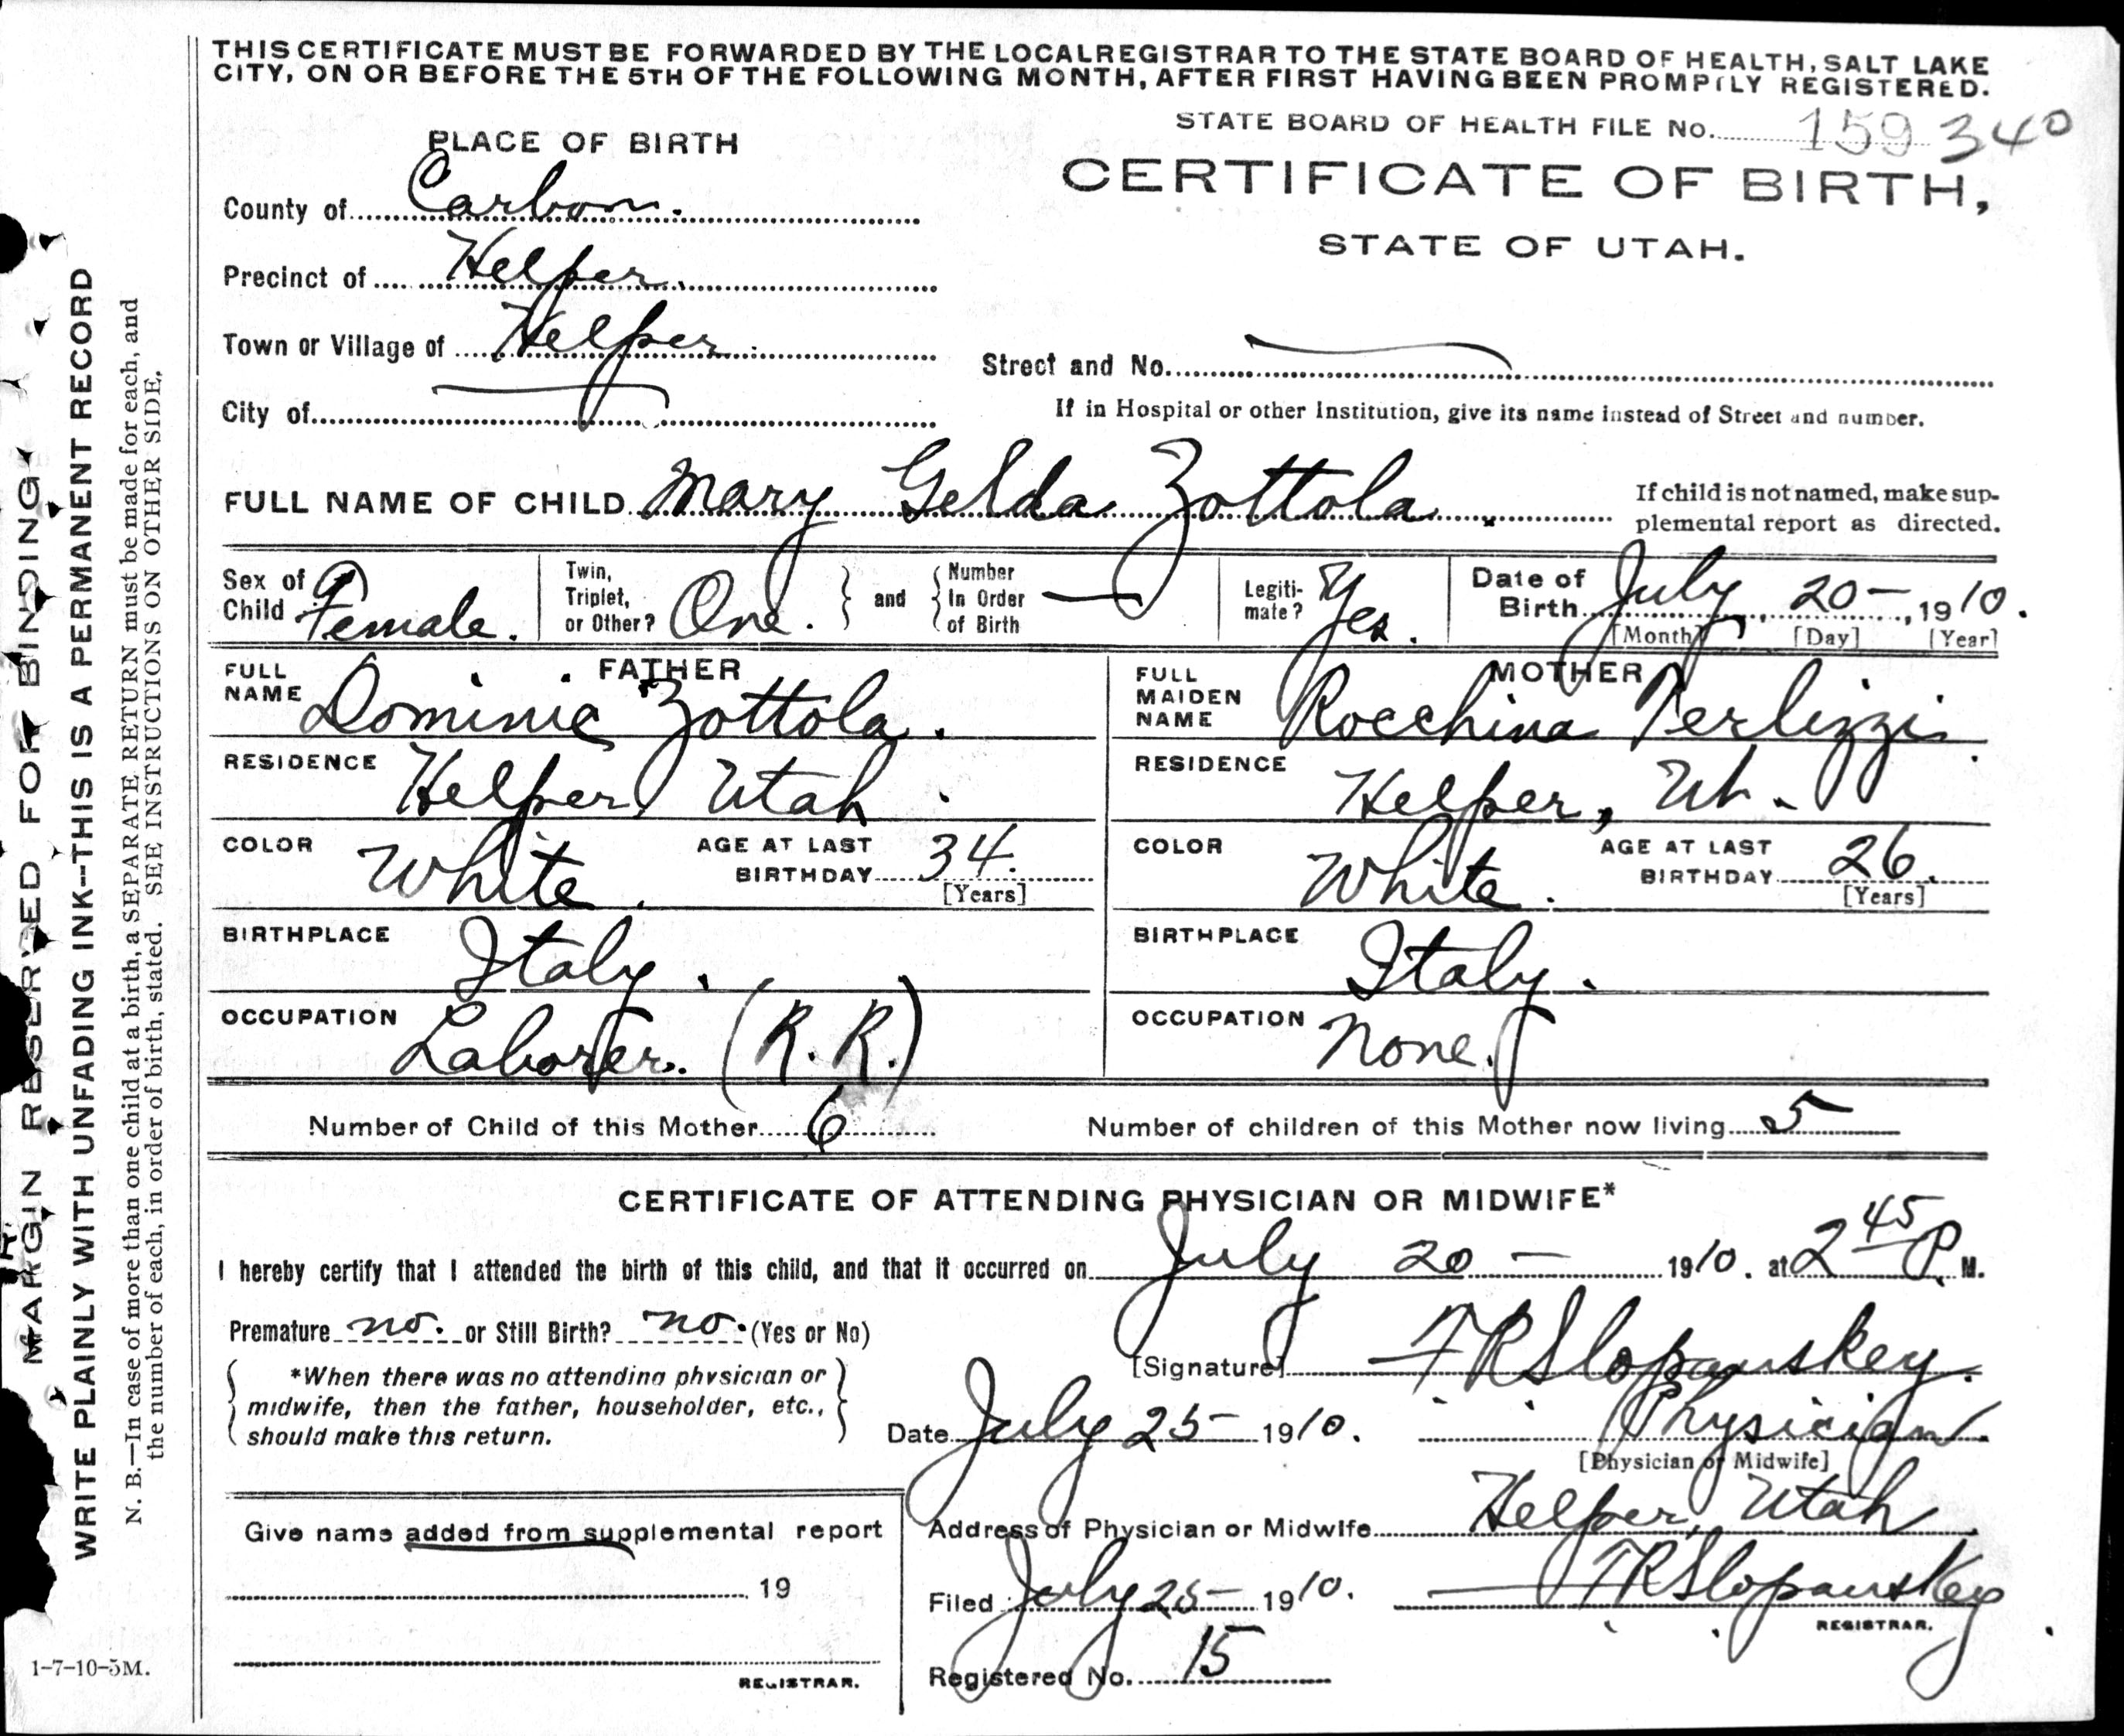 THIS CERTIFICATE MUST BE FORWARDED BY THE LOCAL REGISTRAR TO THE STATE BOARD OF HEALTH, SALT LAKE
CITY, ON OR BEFORE THE 5TH OF THE FOLLOWING MONTH, AFTER FIRST HAVING BEEN PROMPTLY REGISTERED.
STATE BOARD OF HEALTH FILE No. 159 340
PLACE OF BIRTH
CERTIFICATE OF BIRTH,
STATE OF UTAH.
County of Carbon.
Precinct of Helper.
Town or Village of Helper.
Street and No. —
City of —
If in Hospital or other Institution, give its name instead of Street and number.
FULL NAME OF CHILD Mary Gelda Zottola.
If child is not named, make sup-
plemental report as directed.
Sex of Child Female.
Twin, Triplet, or Other? One.
and
Number In Order of Birth —
Legiti-mate? Yes.
Date of Birth July 20 —, 1910.
[Month] [Day] [Year]
FATHER
FULL NAME Dominic Zottola.
RESIDENCE Helper, Utah.
COLOR White.
AGE AT LAST BIRTHDAY 34.
[Years]
BIRTHPLACE Italy.
OCCUPATION Laborer. (R. R.)
MOTHER
FULL MAIDEN NAME Rocchina Terlizzi.
RESIDENCE Helper, Ut.
COLOR White.
AGE AT LAST BIRTHDAY 26.
[Years]
BIRTHPLACE Italy.
OCCUPATION None.
Number of Child of this Mother 6
Number of children of this Mother now living 5
CERTIFICATE OF ATTENDING PHYSICIAN OR MIDWIFE*
I hereby certify that I attended the birth of this child, and that it occurred on July 20 — 1910. at 2 45 P. M.
Premature no. or Still Birth? no. (Yes or No)
[Signature] F R Slopanskey.
*When there was no attending physician or
midwife, then the father, householder, etc.,
should make this return.
Date July 25 — 1910.
Physician.
[Physician or Midwife]
Address of Physician or Midwife Helper, Utah
Give name added from supplemental report
19
REGISTRAR.
Filed July 25 — 1910.
F R Slopanskey
REGISTRAR.
Registered No. 15
MARGIN RESERVED FOR BINDING
WRITE PLAINLY WITH UNFADING INK—THIS IS A PERMANENT RECORD
N. B.—In case of more than one child at a birth, a SEPARATE RETURN must be made for each, and
the number of each, in order of birth, stated. SEE INSTRUCTIONS ON OTHER SIDE.
1-7-10-5M.